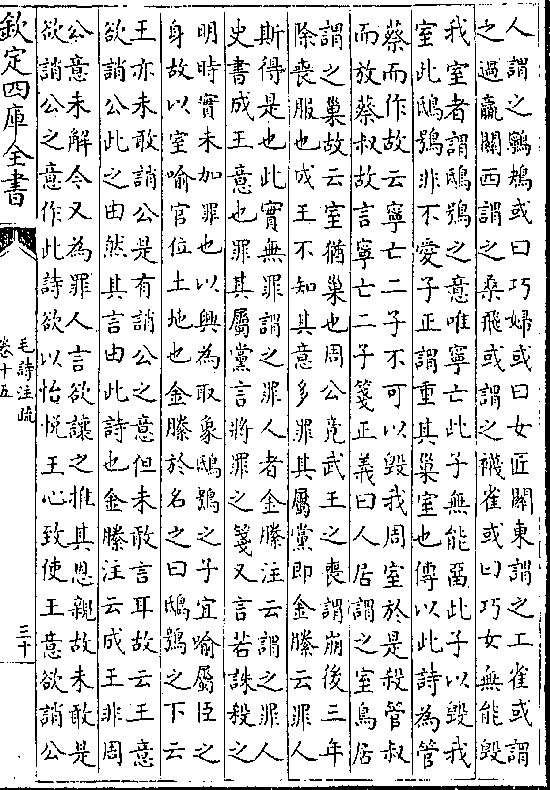 人謂之鸋鴂或曰巧婦或曰女匠關東謂之工雀或謂
之過羸關西謂之桑飛或謂之襪雀或曰巧女無能毀
我室者謂鴟鴞之意唯寧亡此子無能留此子以毀我
室此鴟鴞非不愛子正謂重其巢室也傳以此詩為管
蔡而作故云寧亡二子不可以毀我周室於是殺管叔
而放蔡叔故言寧亡二子箋正義曰人居謂之室鳥居
謂之巢故云室猶巢也周公竟武王之喪謂崩後三年
除喪服也成王不知其意多罪其屬黨即金縢云罪人
斯得是也此實無罪謂之罪人者金縢注云謂之罪人
史書成王意也罪其屬黨言將罪之箋又言若誅殺之
明時實未加罪也以興為取象鴟鴞之子宜喻屬臣之
身故以室喻官位土地也金縢於名之曰鴟鴞之下云
王亦未敢誚公是有誚公之意但未敢言耳故云王意
欲誚公此之由然其言由此詩也金縢注云成王非周
公意未解今又為罪人言欲讓之推其恩親故未敢是
欲誚公之意作此詩欲以怡悅王心致使王意欲誚公
欽定四庫全書
毛詩注疏
卷十五
三十